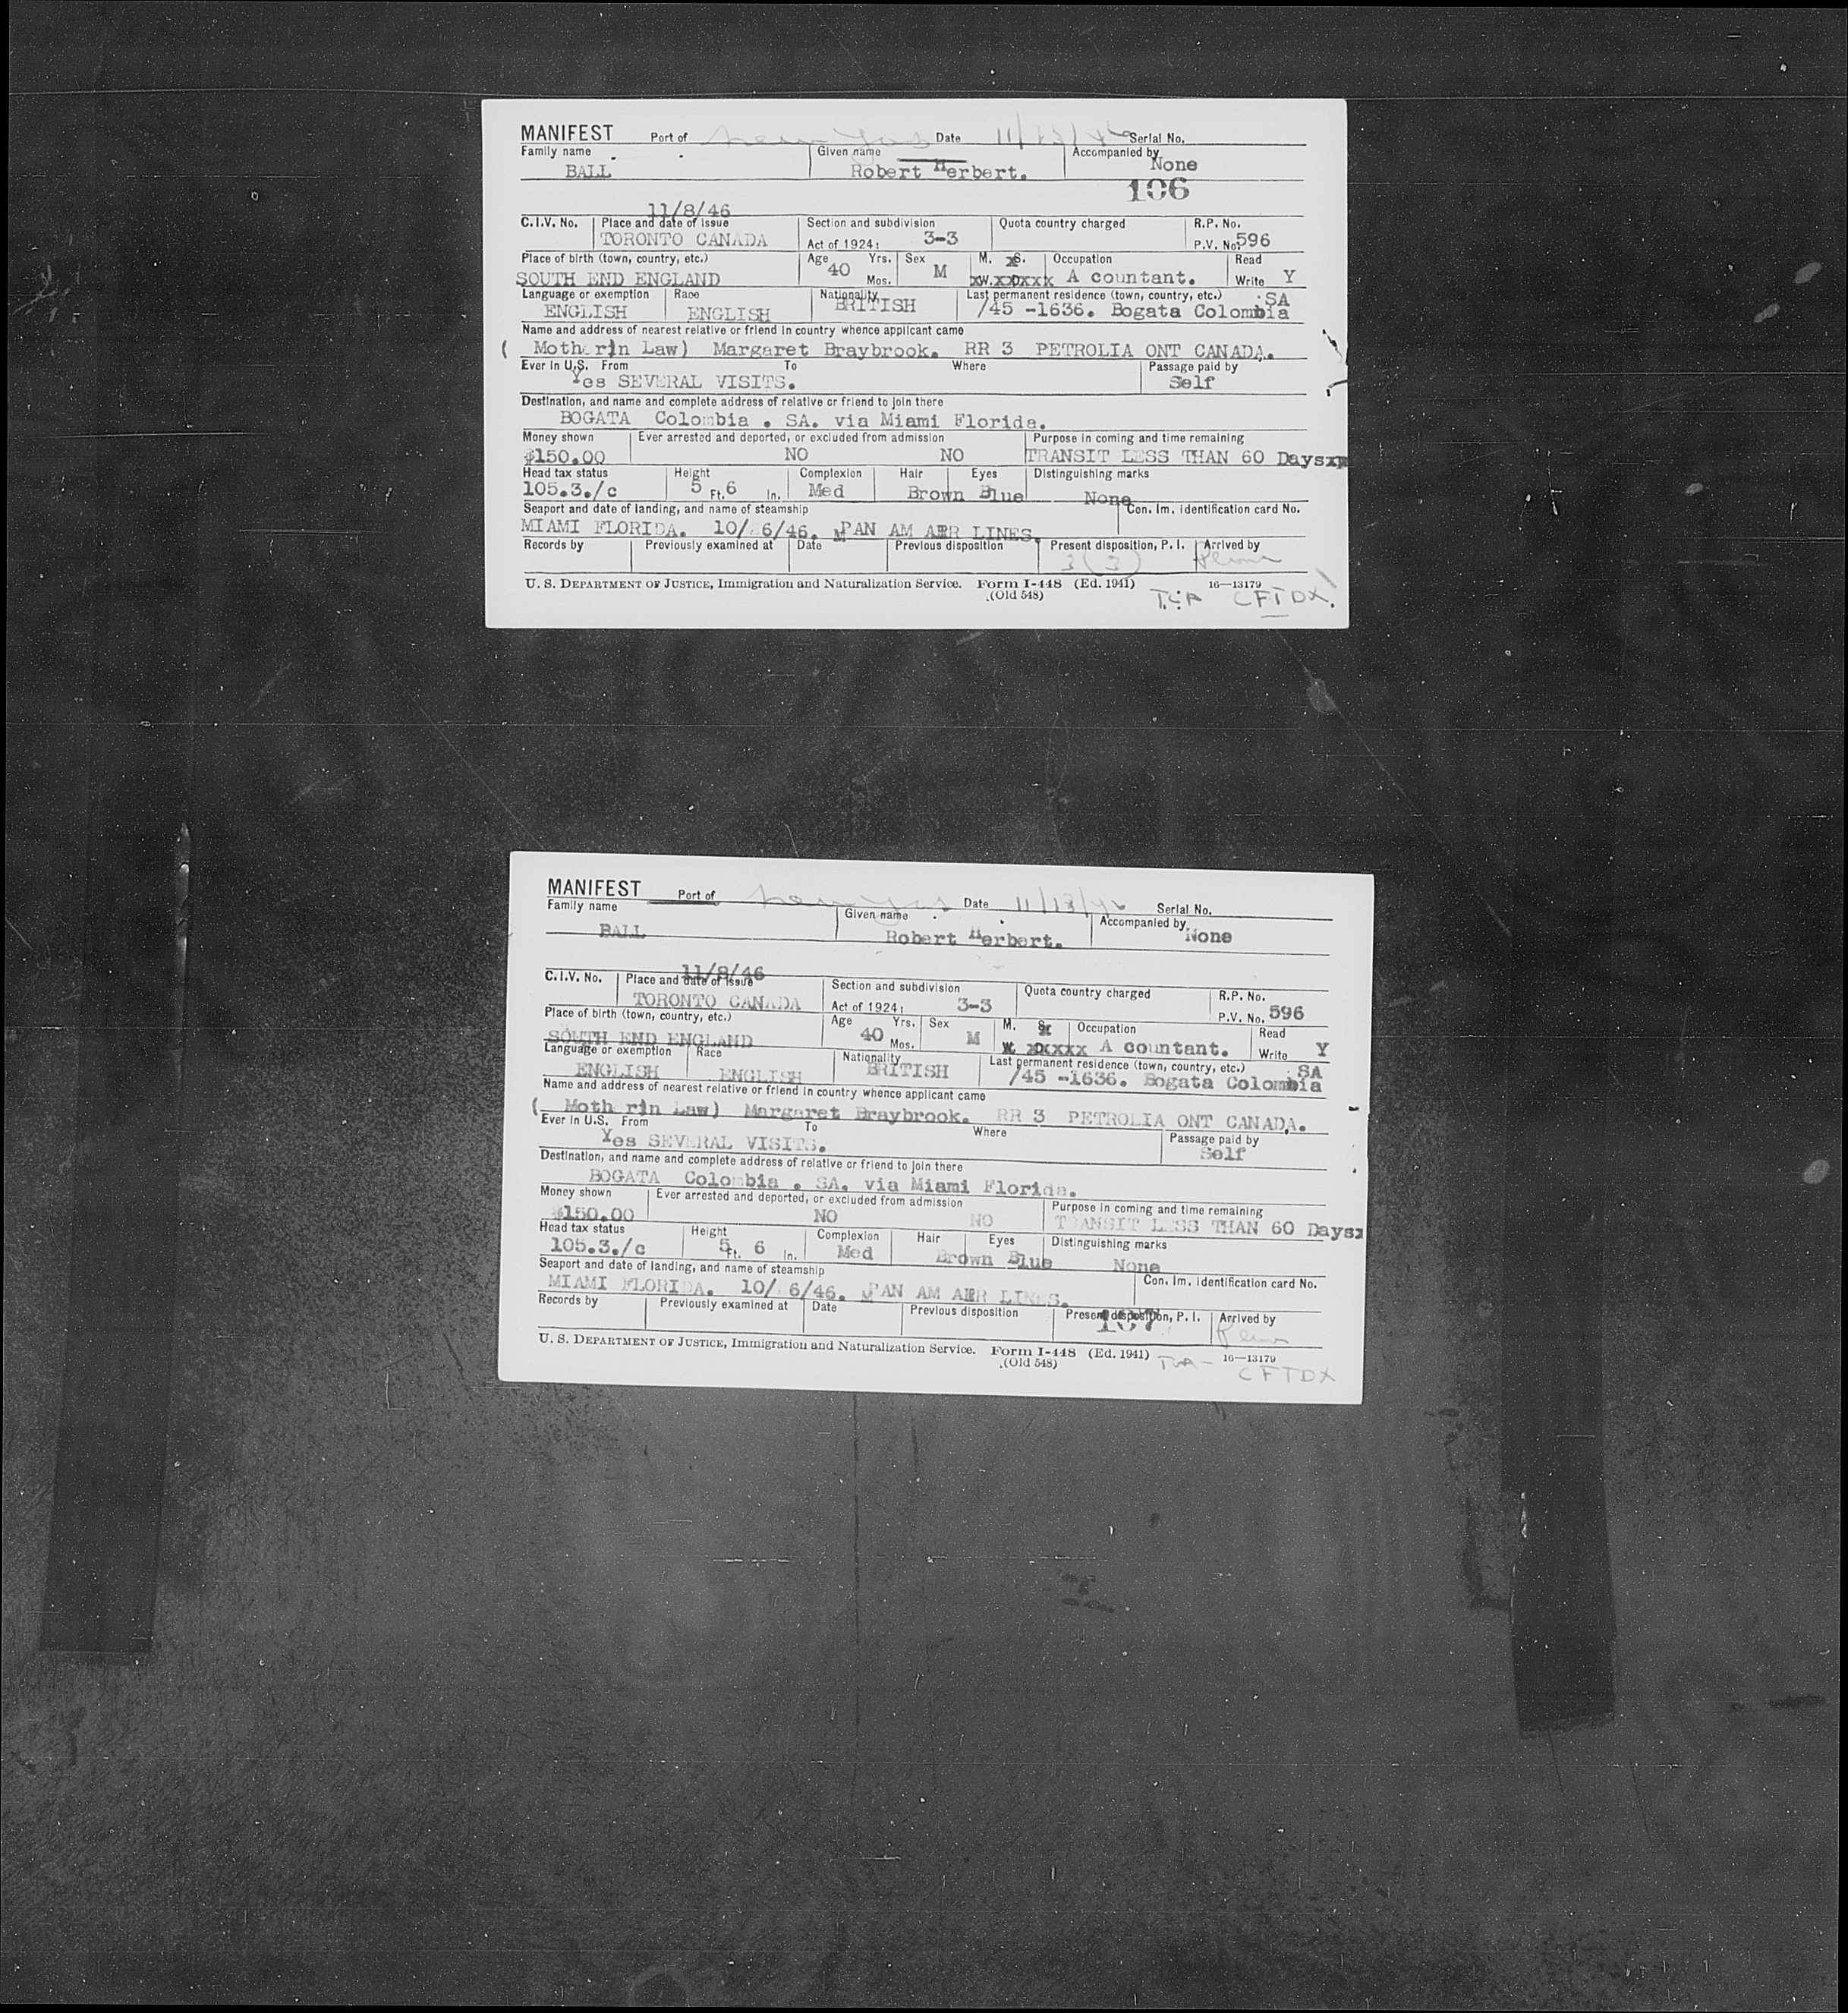 MANIFEST Port of Date 11/13/46 Serial No.
Family name Given name Accompanied by
BALL Robert Herbert. None
106
11/8/46
C.I.V. No. Place and date of issue Section and subdivision Quota country charged R.P. No.
TORONTO CANADA Act of 1924: 3-3 P.V. No. 596
Place of birth (town, country, etc.) Age Yrs. Sex M. xS. Occupation Read
SOUTH END ENGLAND 40 Mos. M xW.xxDxxx A countant. Write Y
Language or exemption Race Nationality Last permanent residence (town, country, etc.) SA
ENGLISH ENGLISH BRITISH /45 -1636. Bogata Colombia
Name and address of nearest relative or friend in country whence applicant came
( Moth rin Law) Margaret Braybrook. RR 3 PETROLIA ONT CANADA.
Ever in U.S. From To Where Passage paid by
Yes SEVERAL VISITS. Self
Destination, and name and complete address of relative or friend to join there
BOGATA Colombia . SA. via Miami Florida.
Money shown Ever arrested and deported, or excluded from admission Purpose in coming and time remaining
$150.00 NO NO TRANSIT LESS THAN 60 Daysxx
Head tax status Height Complexion Hair Eyes Distinguishing marks
105.3./c 5 Ft. 6 In. Med Brown Blue None
Seaport and date of landing, and name of steamship Con. Im. identification card No.
MIAMI FLORIDA. 10/ 6/46. PAN AM AER LINES.
Records by Previously examined at Date Previous disposition Present disposition, P. I. Arrived by
3(3)
U. S. DEPARTMENT OF JUSTICE, Immigration and Naturalization Service. Form I-448 (Ed. 1941) 16—13179
(Old 548) TCA CFTDX.
MANIFEST Port of Date 11/13/46 Serial No.
Family name Given name Accompanied by
BALL Robert Herbert. None
11/8/46
C.I.V. No. Place and date of issue Section and subdivision Quota country charged R.P. No.
TORONTO CANADA Act of 1924: 3-3 P.V. No. 596
Place of birth (town, country, etc.) Age Yrs. Sex M. S. Occupation Read
SOUTH END ENGLAND 40 Mos. M A countant. Write Y
Language or exemption Race Nationality Last permanent residence (town, country, etc.) SA
ENGLISH ENGLISH BRITISH /45 -1636. Bogata Colombia
Name and address of nearest relative or friend in country whence applicant came
( Moth rin Law) Margaret Braybrook. RR 3 PETROLIA ONT CANADA.
Ever in U.S. From To Where Passage paid by
Yes SEVERAL VISITS. Self
Destination, and name and complete address of relative or friend to join there
BOGATA Colombia . SA. via Miami Florida.
Money shown Ever arrested and deported, or excluded from admission Purpose in coming and time remaining
$150.00 NO NO TRANSIT LESS THAN 60 Daysx
Head tax status Height Complexion Hair Eyes Distinguishing marks
105.3./c 5 Ft. 6 In. Med Brown Blue None
Seaport and date of landing, and name of steamship Con. Im. identification card No.
MIAMI FLORIDA. 10/ 6/46. PAN AM AER LINES.
Records by Previously examined at Date Previous disposition Present disposition, P. I. Arrived by
107
U. S. DEPARTMENT OF JUSTICE, Immigration and Naturalization Service. Form I-448 (Ed. 1941) 16—13179
(Old 548) TCA - CFTDX